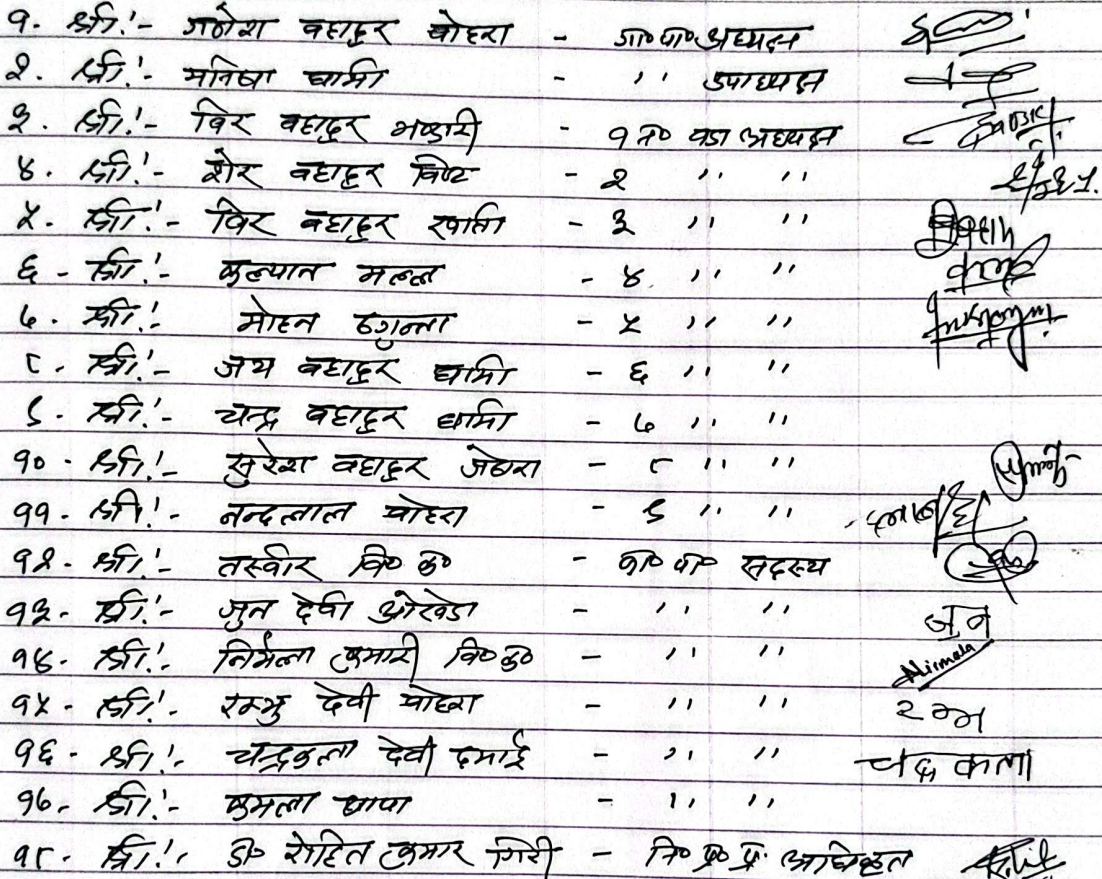 १. श्री.'- गणेश बहादुर बोहरा - गा०पा०अध्यक्ष
२. श्री.'- मनिषा धामी - '' उपाध्यक्ष
३. श्री.'- विर बहादुर भण्डारी - १ न० वडा अध्यक्ष
४. श्री.'- शेर बहादुर विष्ट - २ '' ''
५. श्री.'- विर बहादुर खाती - ३ '' ''
६ - श्री.'- कल्यान मल्ल - ४ '' ''
७. श्री.'- मोहन ठगुन्ना - ५ '' ''
८. श्री.'- जय बहादुर धामी - ६ '' ''
९. श्री.'- चन्द्र बहादुर धामी - ७ '' ''
१० - श्री.'- सुरेश बहादुर जेठारा - ८ '' ''
११. श्री.'- नन्दलाल बोहरा - ९ '' ''
१२ - श्री.'- तस्वीर वि० क० - का० पा० सदस्य
१३. श्री.'- जुन देवी ओखेडा - '' '' जुन
१४. श्री.'- निर्मला कुमारी वि० क० - '' '' Nirmala
१५ - श्री.'- रम्भु देवी बोहरा - '' ''
१६ - श्री.'- चन्द्रकला देवी दमाई - '' '' चद्रकला
१७. श्री.'- कमला थापा - '' ''
१८. श्री.'- डा० रोहित कुमार गिरी - नि० प्र० प्र. अधिकृत